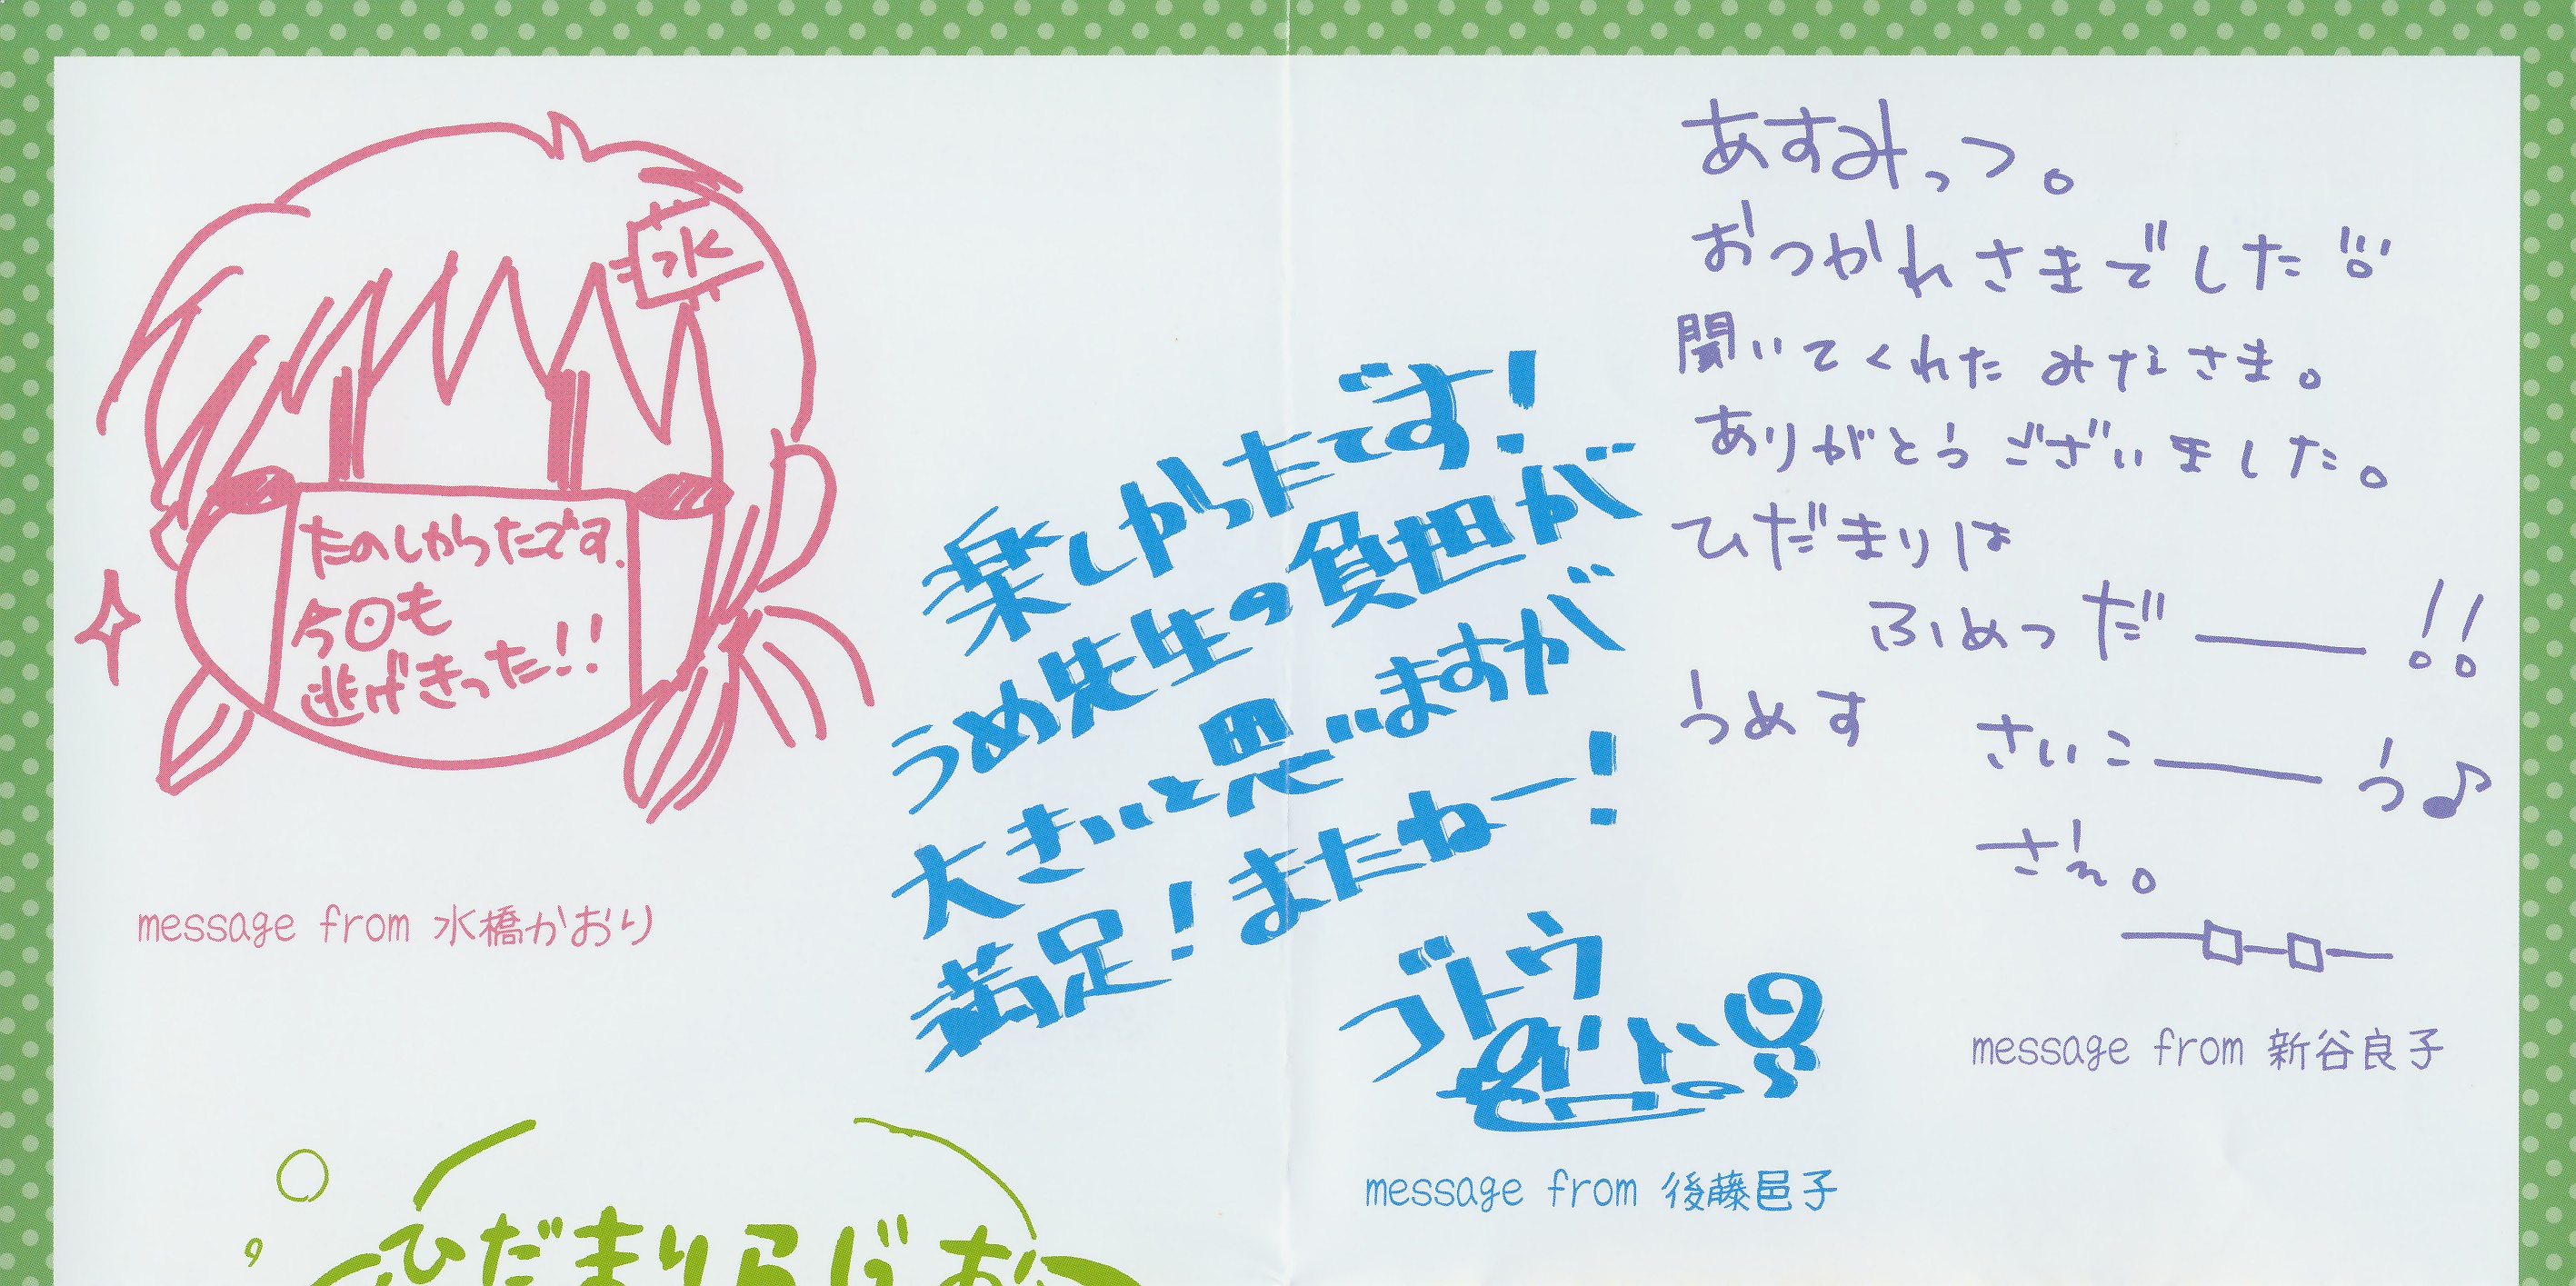 水
たのしかったです.
今日も
逃げきった!!
message from 水橋かおり
楽しかったです!
うめ先生の負担が
大きいと思いますが
満足!またねー!
ゴトウ
message from 後藤邑子
あすみっっ。
おつかれさまでした
聞いてくれた みなさま。
ありがとう ございました。
ひだまりは
ふめつだ——!!
うめす
さいこ——う♪
さえ。
message from 新谷良子
ひだまりらじお